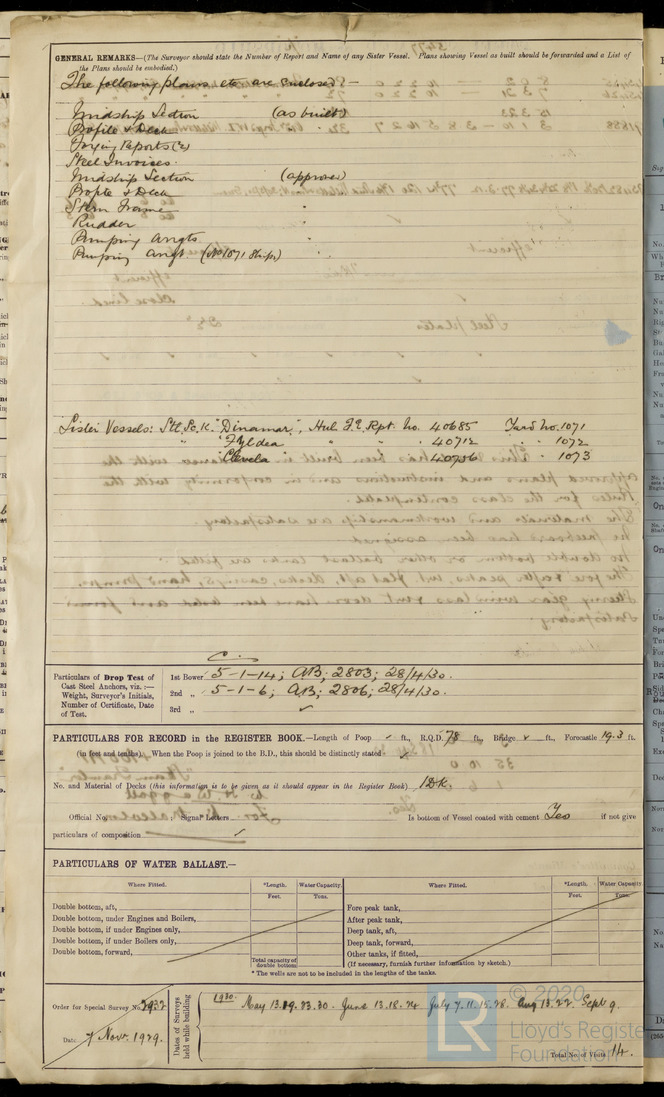 GENERAL REMARKS—(The Surveyor should state the Number of Report and Name of any Sister Vessel. Plans showing Vessel as built should be forwarded and a List of
the Plans should be embodied.)
The following plans etc are enclosed:—
Midship Section (as built)
Profile & Deck
Forging Reports (2)
Steel Invoices.
Midship Section (approved)
Profile & Deck "
Stern Frame "
Rudder "
Pumping Arrgts "
Pumping Arrgt. (No 1071 Ships) "
Sister Vessels: Stl. Sc. K. "Dinamar", Hul F.E. Rpt. No. 40685 Yard No. 1071
" "Fyldea" " " " 40712 " " 1072
" "Clevela" " 40736 " " 1073
Particulars of Drop Test of
Cast Steel Anchors, viz.:—
Weight, Surveyor's Initials,
Number of Certificate, Date
of Test.
1st Bower 5-1-14; AB; 2803; 28/4/30.
2nd „ 5-1-6; AB; 2806; 28/4/30.
3rd „ ✓
PARTICULARS FOR RECORD in the REGISTER BOOK.—Length of Poop ✓ ft., R.Q.D. 78 ft., Bridge ✓ ft., Forecastle 19.3 ft.
(in feet and tenths). When the Poop is joined to the B.D., this should be distinctly stated ✓
No. and Material of Decks (this information is to be given as it should appear in the Register Book) 1 Dk
Official No. ; Signal Letters Is bottom of Vessel coated with cement Yes if not give
particulars of composition ✓
PARTICULARS OF WATER BALLAST.—
Where Fitted. *Length. Water Capacity. Where Fitted. *Length. Water Capacity
Feet. Tons. Feet. Tons.
Double bottom, aft, Fore peak tank,
Double bottom, under Engines and Boilers, After peak tank,
Double bottom, if under Engines only, Deep tank, aft,
Double bottom, if under Boilers only, Deep tank, forward,
Double bottom, forward, Other tanks, if fitted,
Total capacity of
double bottom
(If necessary, furnish further information by sketch.)
* The wells are not to be included in the lengths of the tanks.
Order for Special Survey No. 2932
Date 7 Nov. 1929.
Dates of Surveys
held while building
1930. May 13.19.23.30. June 13.18.24 July 7.11.15.28. Aug 13.22 Sept 9
Total No. of Visits 14.
© 2020
LR
Lloyd's Registe
Foundation